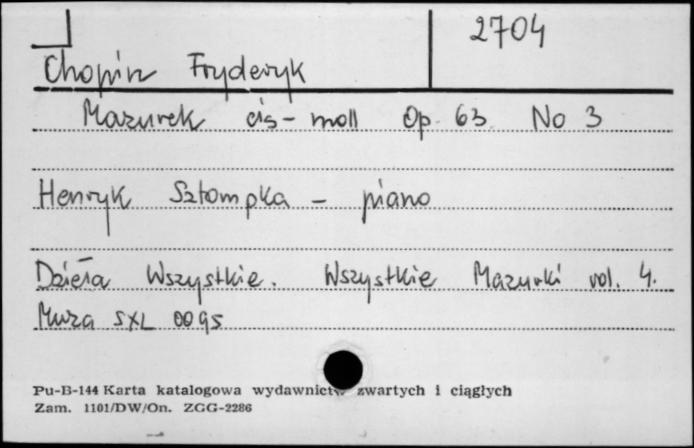 2704
Chopin Fryderyk
Mazurek cis-moll Op. 63. No 3
Henryk Sztompka - piano
Dzieła Wszystkie. Wszystkie Mazurki vol. 4.
Muza SXL 0095
Pu-B-144 Karta katalogowa wydawnictw zwartych i ciągłych
Zam. 1101/DW/On. ZGG-2286